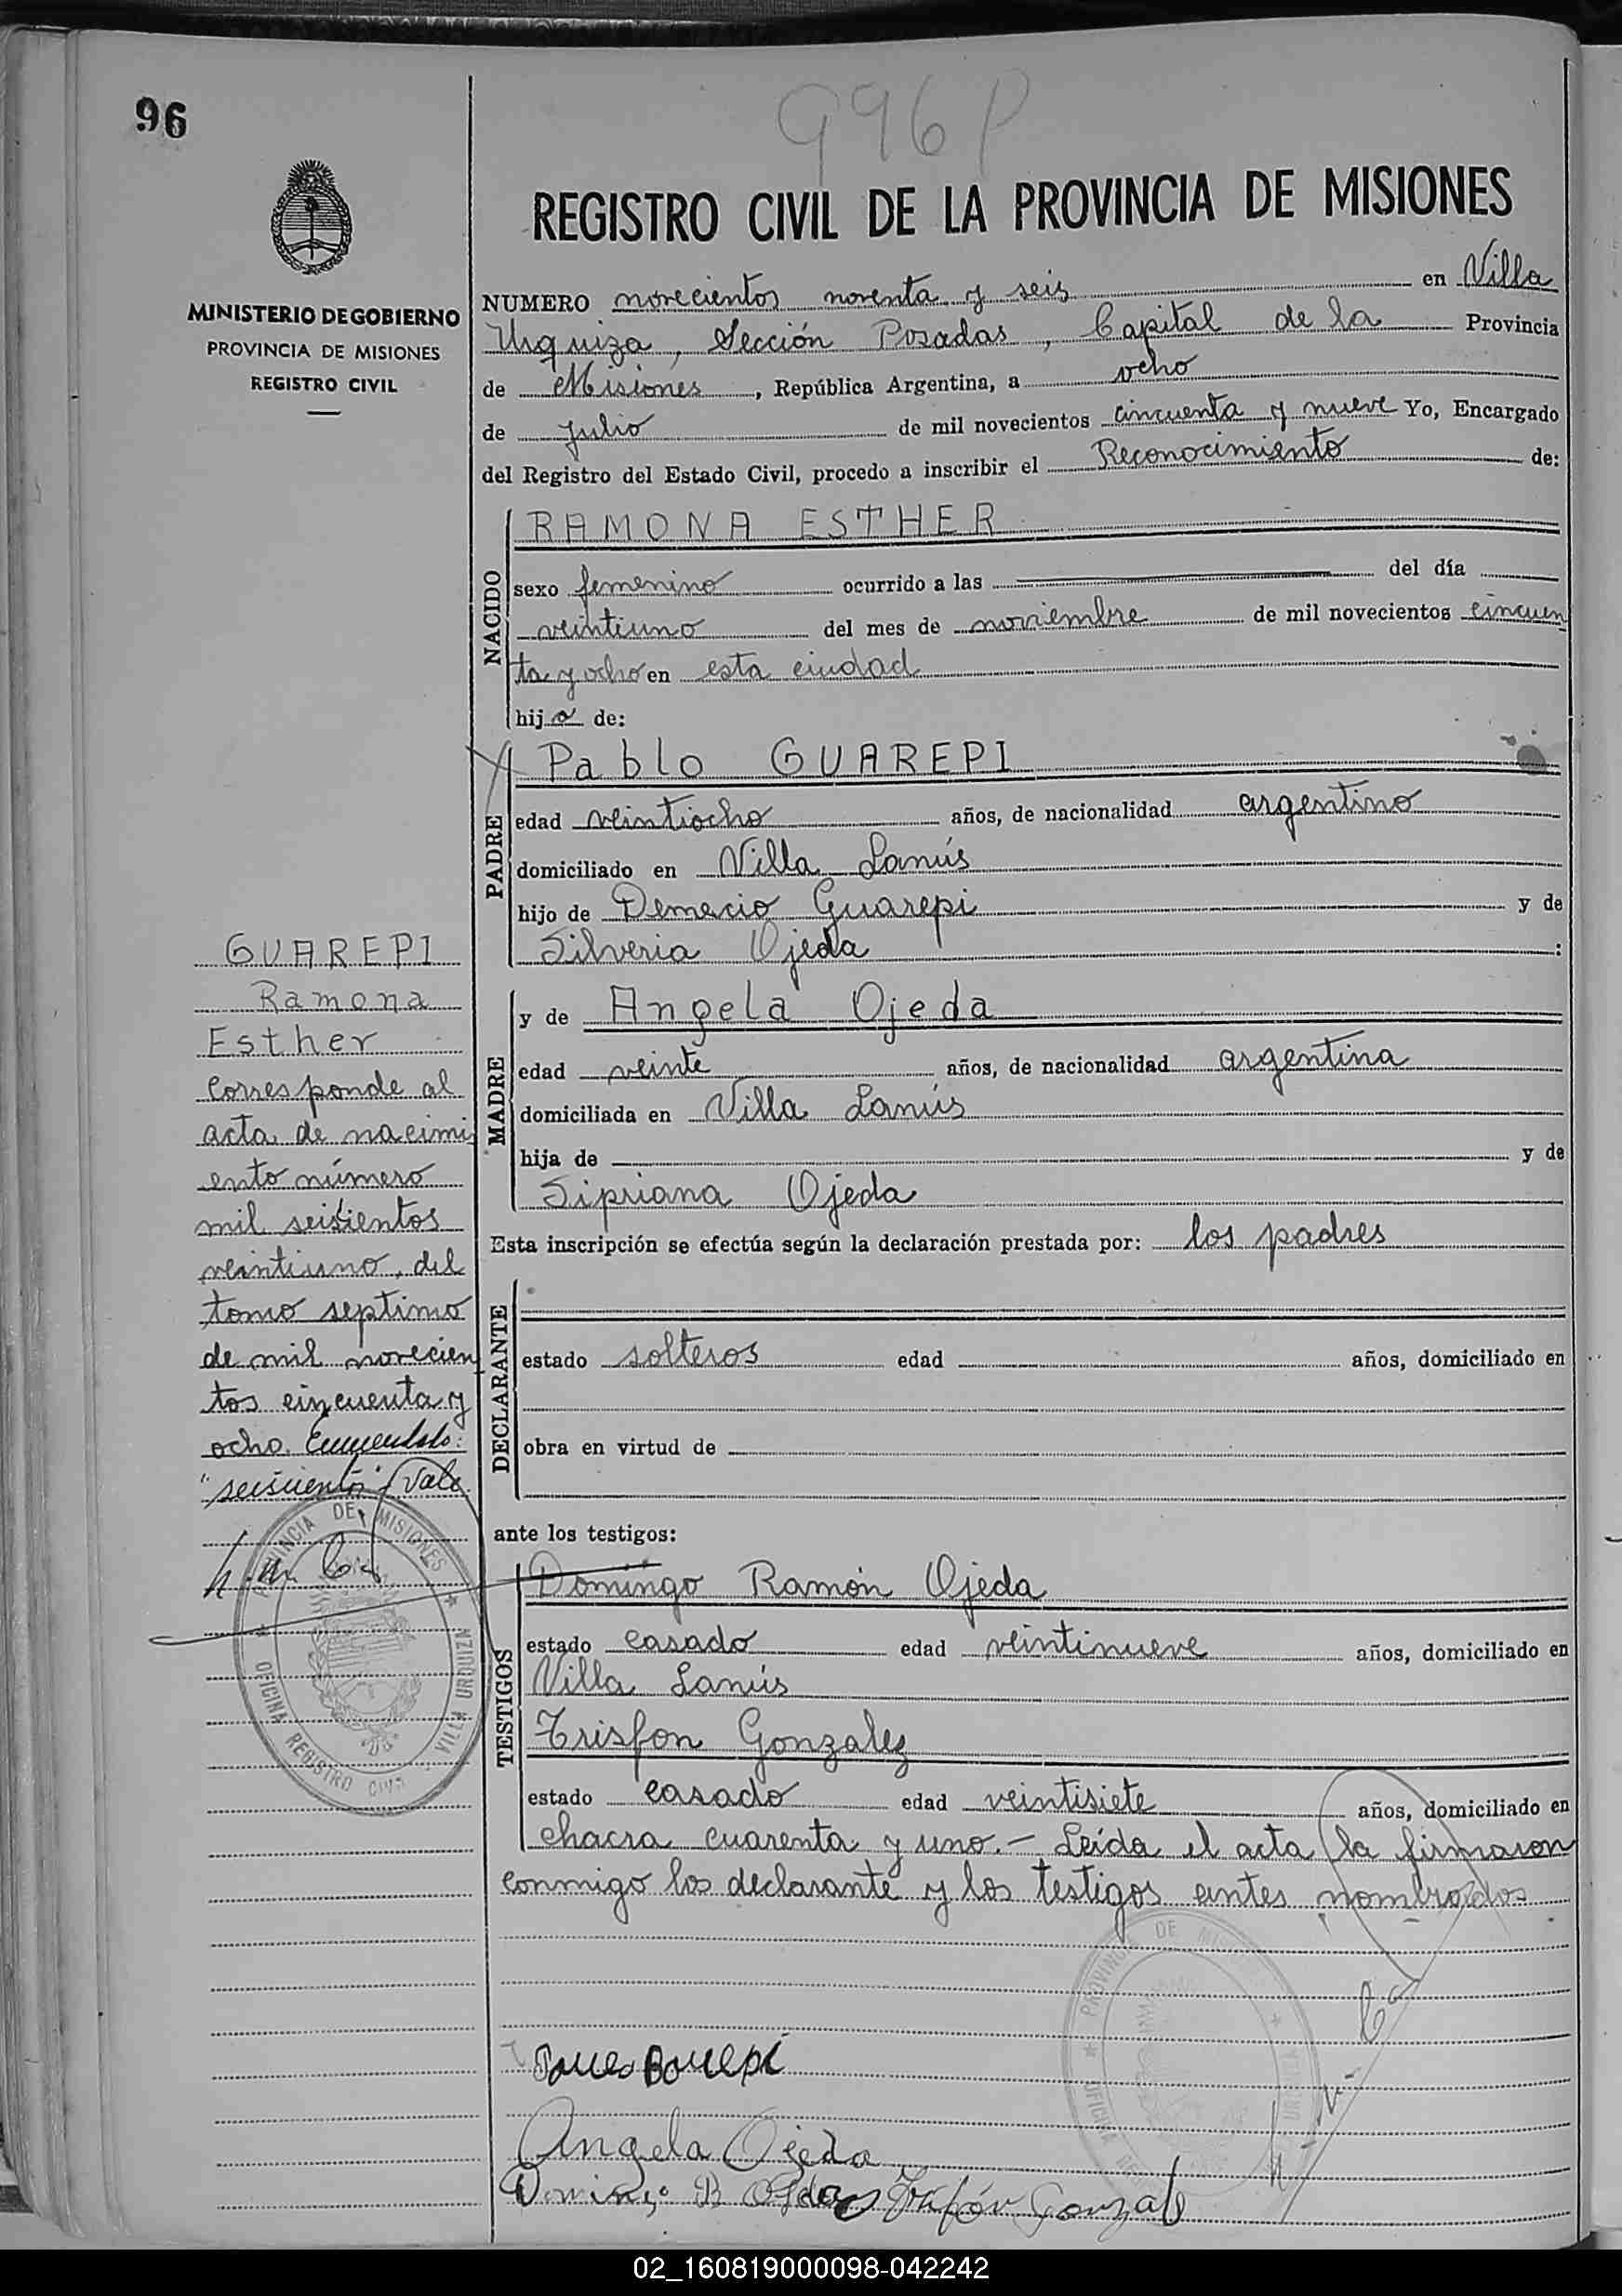 96
996 P
REGISTRO CIVIL DE LA PROVINCIA DE MISIONES
MINISTERIO DE GOBIERNO
PROVINCIA DE MISIONES
REGISTRO CIVIL
NUMERO novecientos noventa y seis en Villa
Urquiza, Sección Posadas, Capital de la Provincia
de Misiones, República Argentina, a ocho
de julio de mil novecientos cincuenta y nueve Yo, Encargado
del Registro del Estado Civil, procedo a inscribir el Reconocimiento de:
NACIDO
RAMONA ESTHER
sexo femenino ocurrido a las del día
veintiuno del mes de noviembre de mil novecientos cincuen
ta y ocho en esta ciudad
hija de:
PADRE
Pablo GUAREPI
edad veintiocho años, de nacionalidad argentino
domiciliado en Villa Lanús
hijo de Demecio Guarepi y de
Silveria Ojeda :
MADRE
y de Angela Ojeda
edad veinte años, de nacionalidad argentina
domiciliada en Villa Lanús
hija de y de
Sipriana Ojeda
Esta inscripción se efectúa según la declaración prestada por: los padres
DECLARANTE
estado solteros edad años, domiciliado en
obra en virtud de
ante los testigos:
TESTIGOS
Domingo Ramón Ojeda
estado casado edad veintinueve años, domiciliado en
Villa Lanús
Trisfon Gonzalez
estado casado edad veintisiete años, domiciliado en
chacra cuarenta y uno.- Leída el acta la firmaron
conmigo los declarante y los testigos antes nombrados
GUAREPI
Ramona
Esther
Corresponde al
acta de nacimi
ento número
mil seisientos
veintiuno, del
tomo septimo
de mil novecien
tos cincuenta y
ocho. Enmendado:
"seiscientos" Vale
PROVINCIA DE MISIONES
OFICINA REGISTRO CIVIL VILLA URQUIZA
PROVINCIA DE MISIONES
OFICINA
Angela Ojeda
Domingo R Ojeda Trifón Gonzalez
02_160819000098-042242